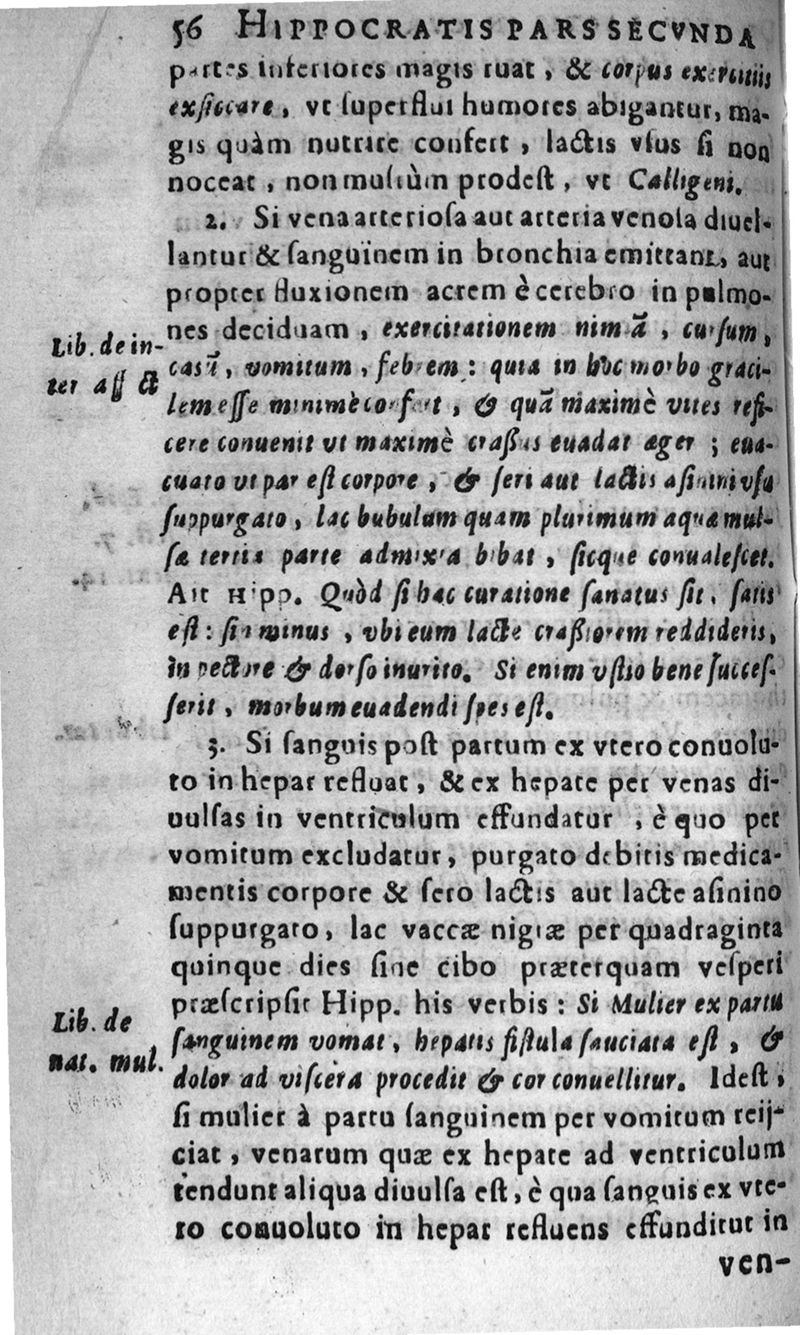 56 HIPPOCRATIS PARS SECVNDA
partes inferiores magis ruat, & corpus exercitiis
exſiccare, vt ſuperflui humores abigantur, ma-
gis quàm nutrire confert, lactis vſus ſi non
noceat, non multùm prodeſt, vt Calligeni.
2. Si vena arterioſa aut arteria venoſa diuel-
lantur & ſanguinem in bronchia emittant, aut
propter fluxionem acrem è cerebro in pulmo-
nes deciduam, exercitationem nimiā, curſum,
Lib. de in-
ter aff. &
caſū, vomitum, febrem: quia in hoc morbo graci-
lem eſſe minimè confert, & quā maximè vires refi-
cere conuenit vt maximè craſſus euadat æger; eua-
cuato vt par eſt corpore, & ſeri aut lactis aſinini vſu
ſuppurgato, lac bubulum quam plurimum aqua mul-
ſa tertia parte admixta bibat, ſicque conualeſcet.
Ait Hipp. Quòd ſi hac curatione ſanatus ſit, ſatis
eſt: ſin minus, vbi eum lacte craſſiorem reddideris,
in pectore & dorſo inurito. Si enim vſtio bene ſucceſ-
ſerit, morbum euadendi ſpes eſt.
3. Si ſanguis poſt partum ex vtero conuolu-
to in hepar refluat, & ex hepate per venas di-
uulſas in ventriculum effundatur, è quo per
vomitum excludatur, purgato debitis medica-
mentis corpore & ſero lactis aut lacte aſinino
ſuppurgato, lac vaccæ nigræ per quadraginta
quinque dies ſine cibo præterquam veſperi
præſcripſit Hipp. his verbis: Si Mulier ex partu
Lib. de
nat. mul.
ſanguinem vomat, hepatis fiſtula ſauciata eſt, &
dolor ad viſcera procedit & cor conuellitur. Ideſt,
ſi mulier à partu ſanguinem per vomitum reij-
ciat, venarum quæ ex hepate ad ventriculum
tendunt aliqua diuulſa eſt, è qua ſanguis ex vte-
ro conuoluto in hepar refluens effunditur in
ven-